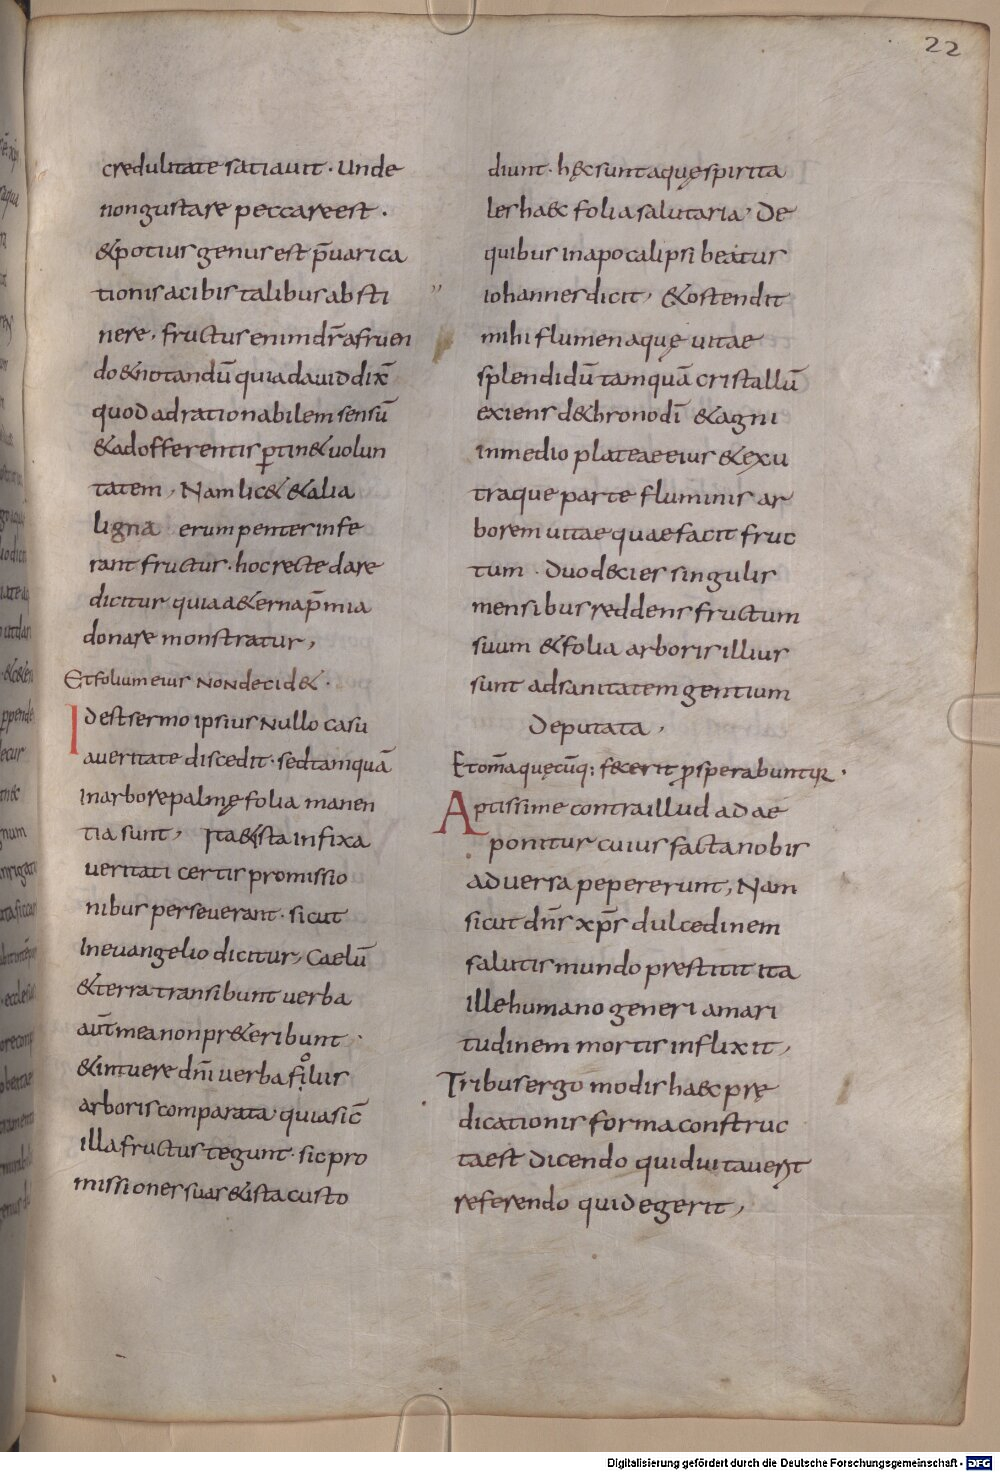 22
credulitate satiauit. Unde
non gustare peccare est.
& potius genus est p̄uarica
tionis a cibis talibus absti
nere, fructus enim dr̄ a fruen
do & notandū quia dauid dix̄
quod ad rationabilem sensū
& ad offerentis ꝑtin& uolun
tatem, Nam lic& & alia
ligna erumpenter infe
rant fructus. hoc recte dare
dicitur quia a&erna p̄mia
donare monstratur,
Et folium eius NoN decid&.
Id est sermo ipsius Nullo casu
a ueritate discedit. sed tamquā
in arbore palmę folia manen
tia sunt, Ita & ista infixa
ueritati certis promissio
nibus perseuerant. sicut
In euangelio dicitur, Caelū
& terra transibunt uerba
aut̄ mea non pr&eribunt
& intuere dn̄i uerba foliis
arboris comparata quia sic̄
illa fructus tegunt. sic pro
missiones suas & ista custo
diunt. hęc sunt aquę spirita
les haec folia salutaria, De
quibus in apocalipsi beatus
iohannes dicit, & ostendit
mihi flumen aquę uitae
splendidū tamquā cristallū
exiens de throno dī & agni
in medio plateae eius & ex u
traque parte fluminis ar
borem uitae quae facit fruc
tum. duodecies singulis
mensibus reddens fructum
suum & folia arboris illius
sunt ad sanitatem gentium
deputata,
Et om̄a quęcūq; fecerit prosperabuntur.
Aptissime contra illud adae
ponitur cuius facta nobis
aduersa pepererunt, Nam
sicut dn̄s xp̄s dulcedinem
salutis mundo prestitit ita
ille humano generi amari
tudinem mortis inflixit,
Tribus ergo modis haec prę
dicationis forma construc
ta est dicendo quid uitauerit
referendo quid egerit,
Digitalisierung gefördert durch die Deutsche Forschungsgemeinschaft - DFG